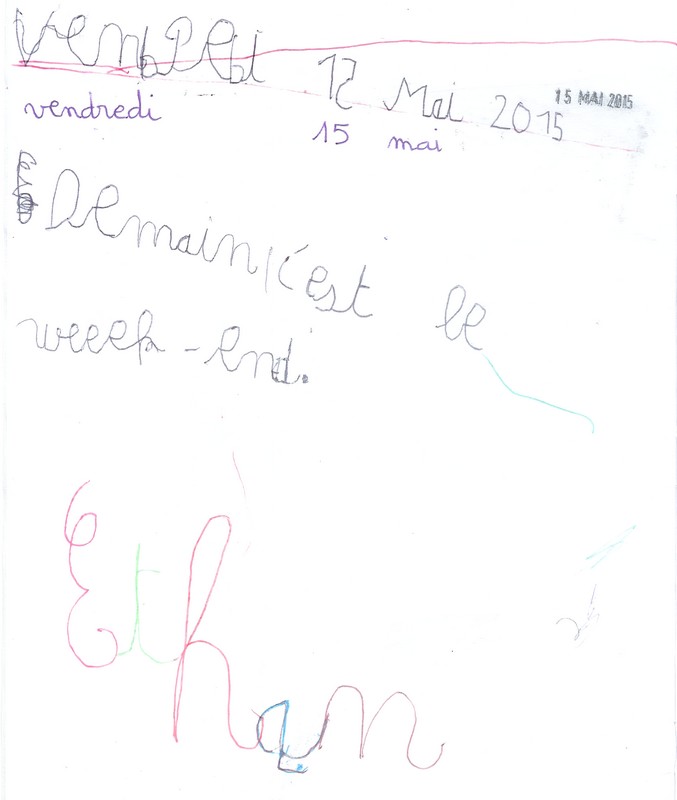 12 Mai 2015
15 MAI 2015
vendredi 15 mai
Demain, c'est le
weeek-end.
Ethan